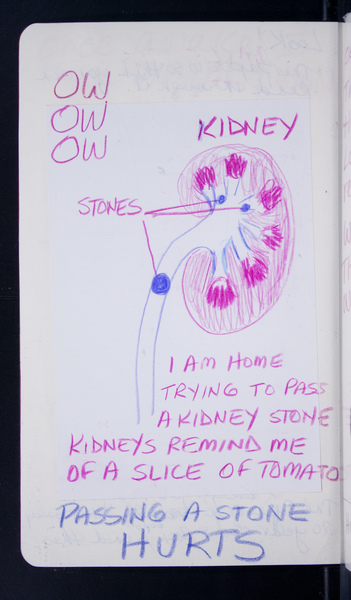 OW
OW
OW
KIDNEY
STONES
I AM HOME
TRYING TO PASS
A KIDNEY STONE
KIDNEYS REMIND ME
OF A SLICE OF TOMATO
PASSING A STONE
HURTS